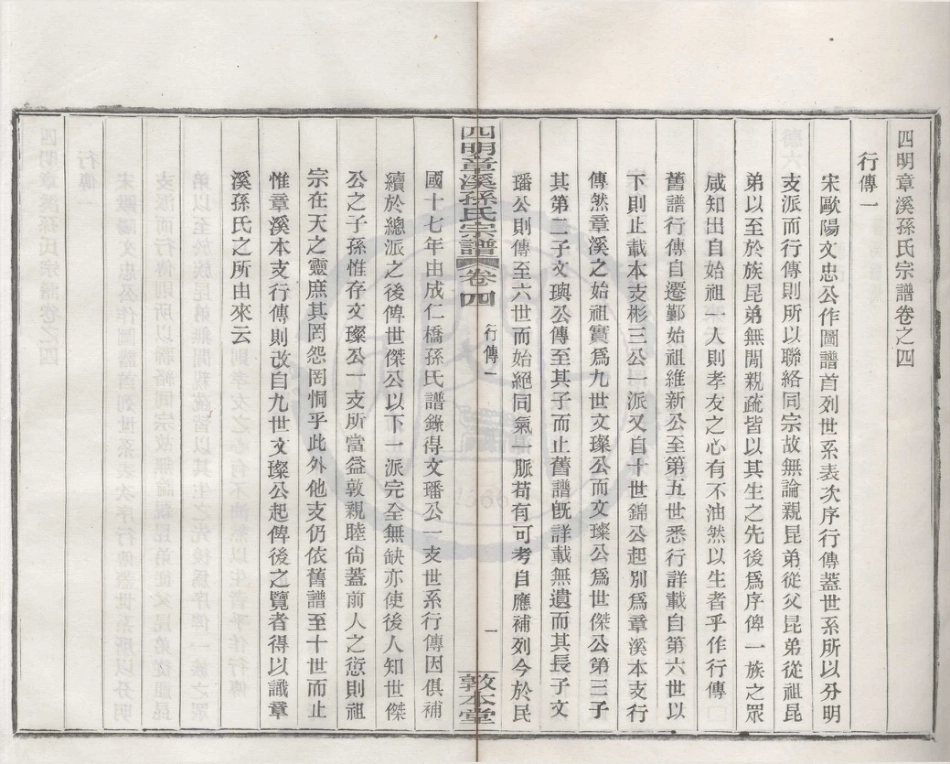 四明章溪孫氏宗譜卷之四
行傳一
宋歐陽文忠公作圖譜首列世系表次序行傳蓋世系所以分明
支派而行傳則所以聯絡同宗故無論親昆弟從父昆弟從祖昆
弟以至於族昆弟無閒親疏皆以其生之先後爲序俾一族之眾
咸知出自始祖一人則孝友之心有不油然以生者乎作行傳
舊譜行傳自遷鄞始祖維新公至第五世悉行詳載自第六世以
下則止載本支彬三公一派又自十世錦公起別爲章溪本支行
傳然章溪之始祖實爲九世文璨公而文璨公爲世傑公第三子
其第二子文璵公傳至其子而止舊譜旣詳載無遺而其長子文
璠公則傳至六世而始絕同氣一脈苟有可考自應補列今於民
四明章溪孫氏宗譜 卷四 行傳一 一 敦本堂
國十七年由成仁橋孫氏譜錄得文璠公一支世系行傳因俱補
續於總派之後俾世傑公以下一派完全無缺亦使後人知世傑
公之子孫惟存文璨公一支所當益敦親睦尙蓋前人之愆則祖
宗在天之靈庶其罔怨罔恫乎此外他支仍依舊譜至十世而止
惟章溪本支行傳則改自九世文璨公起俾後之覽者得以識章
溪孫氏之所由來云